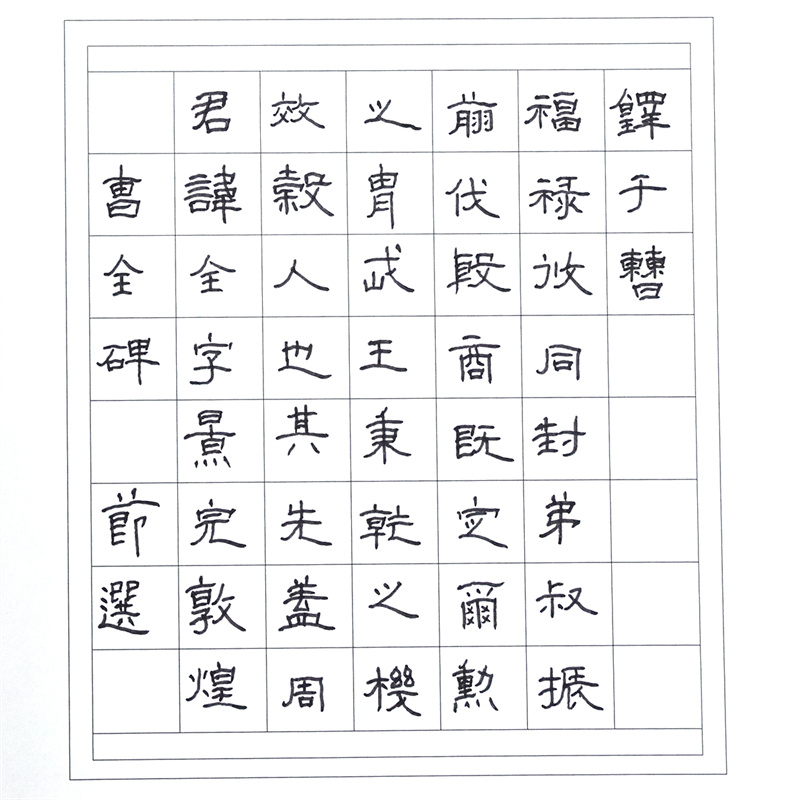 曹全碑 節選
君諱全字景完敦煌
效穀人也其先蓋周
之胄武王秉乾之機
翦伐殷商既定爾勳
福祿攸同封弟叔振
鐸于曹